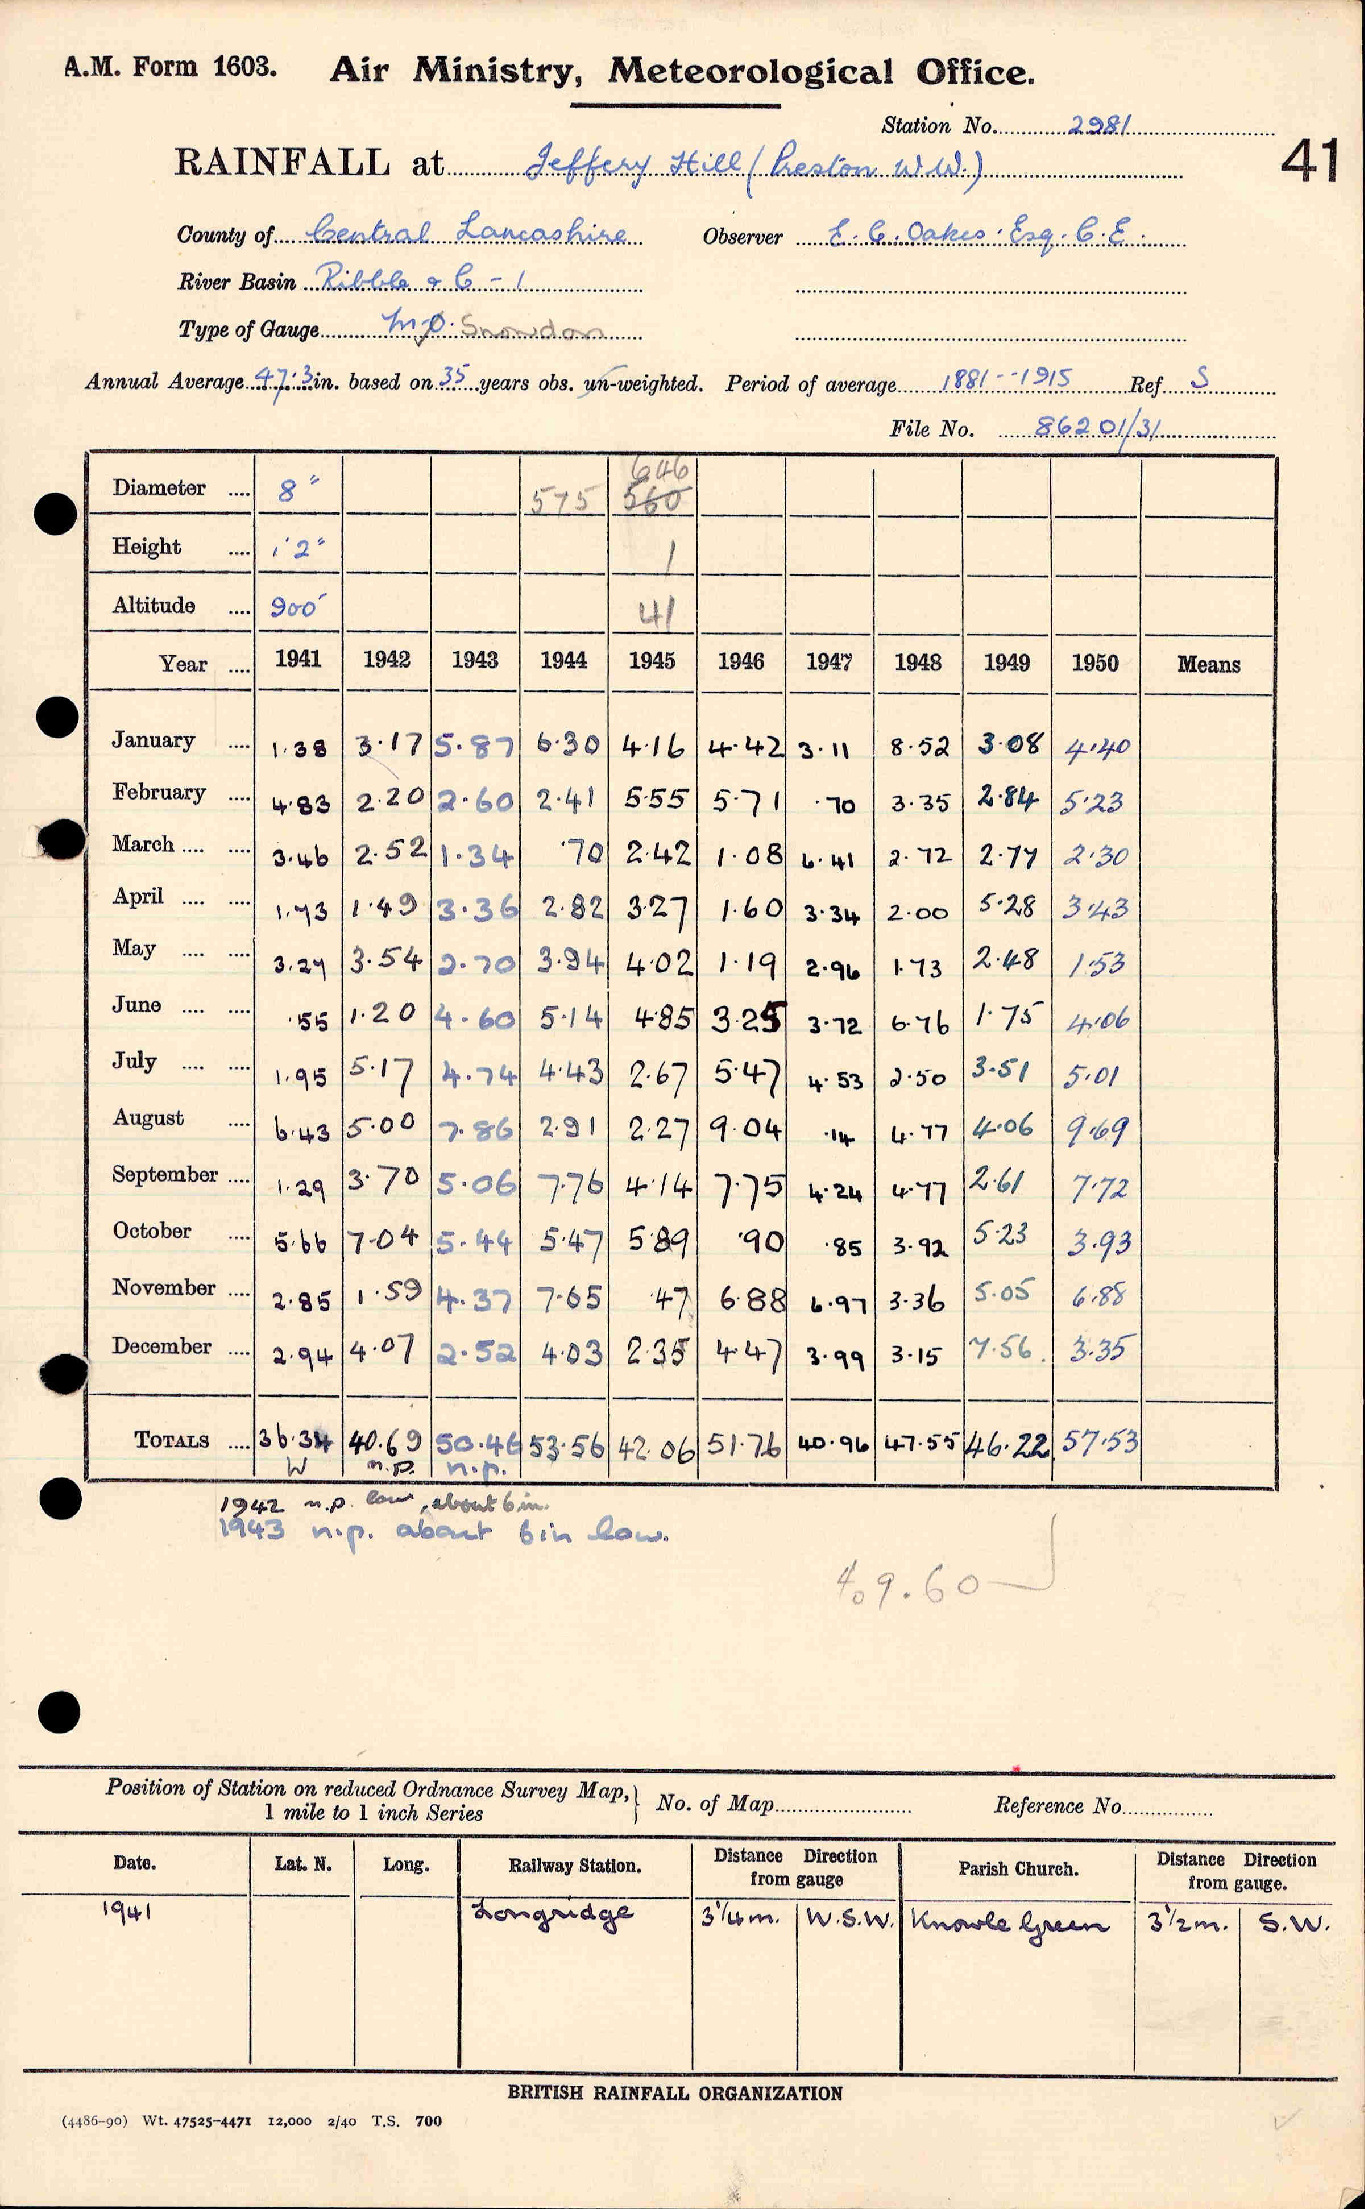 A.M. Form 1603. Air Ministry, Meteorological Office.
Station No. 2981
41
RAINFALL at Jeffery Hill (Preston W.W.)
County of Central Lancashire Observer E. C. Oakes. Esq. C.E.
River Basin Ribble & C - 1
Type of Gauge Snowdon
Annual Average 47.3 in. based on 35 years obs. un-weighted. Period of average 1881--1915 Ref. S
File No. 86201/31
646
Diameter .... 8" 575 560
Height .... 1' 2" 1
Altitude .... 900' 41
Year .... 1941 1942 1943 1944 1945 1946 1947 1948 1949 1950 Means
January .... 1.38 3.17 5.87 6.30 4.16 4.42 3.11 8.52 3.08 4.40
February .... 4.83 2.20 2.60 2.41 5.55 5.71 .70 3.35 2.84 5.23
March .... .... 3.46 2.52 1.34 .70 2.42 1.08 6.41 2.72 2.77 2.30
April .... .... 1.73 1.49 3.36 2.82 3.27 1.60 3.34 2.00 5.28 3.43
May .... .... 3.27 3.54 2.70 3.94 4.02 1.19 2.96 1.73 2.48 1.53
June .... .... .55 1.20 4.60 5.14 4.85 3.25 3.72 6.76 1.75 4.06
July .... .... 1.95 5.17 4.74 4.43 2.67 5.47 4.53 2.50 3.51 5.01
August .... 6.43 5.00 7.86 2.91 2.27 9.04 .14 4.77 4.06 9.69
September .... 1.29 3.70 5.06 7.76 4.14 7.75 4.24 4.77 2.61 7.72
October .... 5.66 7.04 5.44 5.47 5.89 .90 .85 3.92 5.23 3.93
November .... 2.85 1.59 4.37 7.65 .47 6.88 6.97 3.36 5.05 6.88
December .... 2.94 4.07 2.52 4.03 2.35 4.47 3.99 3.15 7.56 3.35
TOTALS .... 36.34 40.69 50.46 53.56 42.06 51.76 40.96 47.55 46.22 57.53
W n.p. n.p.
1942 n.p. low, about 6 in.
1943 n.p. about 6in low.
49.60
Position of Station on reduced Ordnance Survey Map,} No. of Map Reference No.
1 mile to 1 inch Series
Date. Lat. N. Long. Railway Station. Distance Direction from gauge Parish Church. Distance Direction from gauge.
1941 Longridge 3 1/4 m. W.S.W. Knowle Green 3 1/2 m. S.W.
BRITISH RAINFALL ORGANIZATION
(4486-90) Wt. 47525-4471 12,000 2/40 T.S. 700